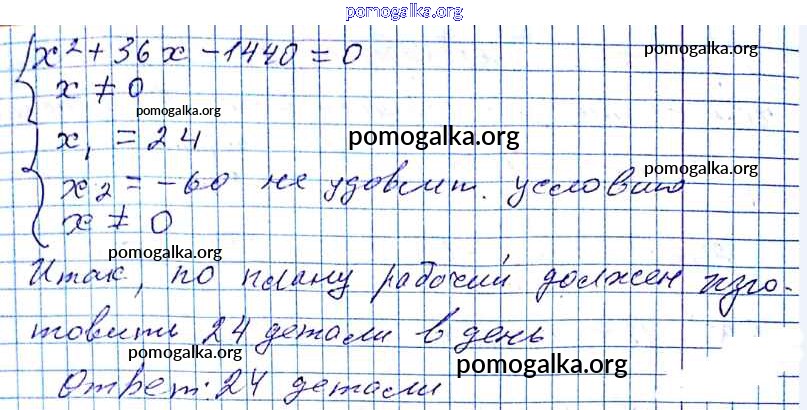 pomogalka.org
x² + 36x - 1440 = 0
pomogalka.org
x ≠ 0
pomogalka.org
x₁ = 24
pomogalka.org
x₂ = -60 не удовлит. условию
pomogalka.org
x ≠ 0
pomogalka.org
Итак, по плану рабочий должен изго-
товить 24 детали в день
pomogalka.org
pomogalka.org
Ответ: 24 детали